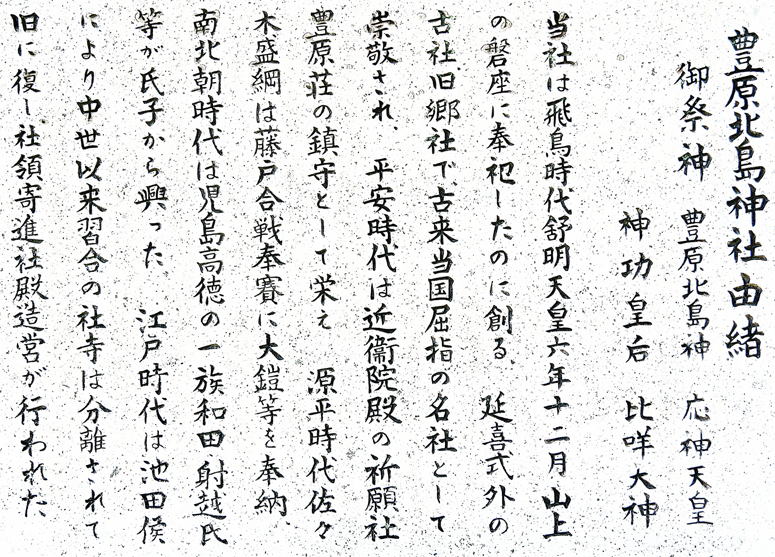 豊原北島神社由緒
御祭神　豊原北島神　応神天皇
神功皇后　比咩大神
当社は飛鳥時代舒明天皇六年十二月山上
の磐座に奉祀したのに創る　延喜式外の
古社旧郷社で、古来当国屈指の名社として
崇敬され、平安時代は近衞院殿の祈願社
豊原荘の鎮守として栄え　源平時代佐々
木盛綱は藤戸合戦奉賽に大鎧等を奉納
南北朝時代は児島高徳の一族和田、射越氏
等が氏子から興った　江戸時代は池田侯
により中世以来習合の社寺は分離されて
旧に復し、社領寄進社殿造営が行われた